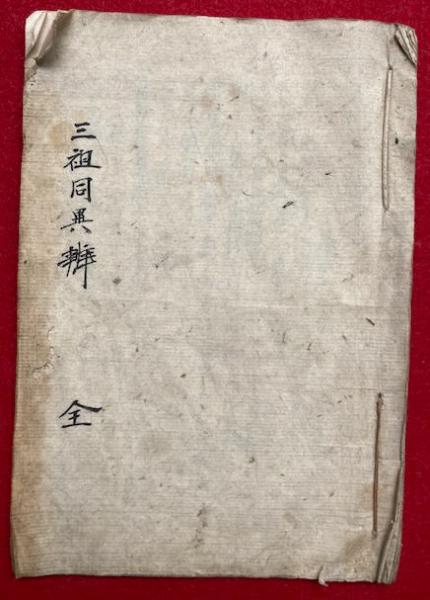 三祖同異辨 全